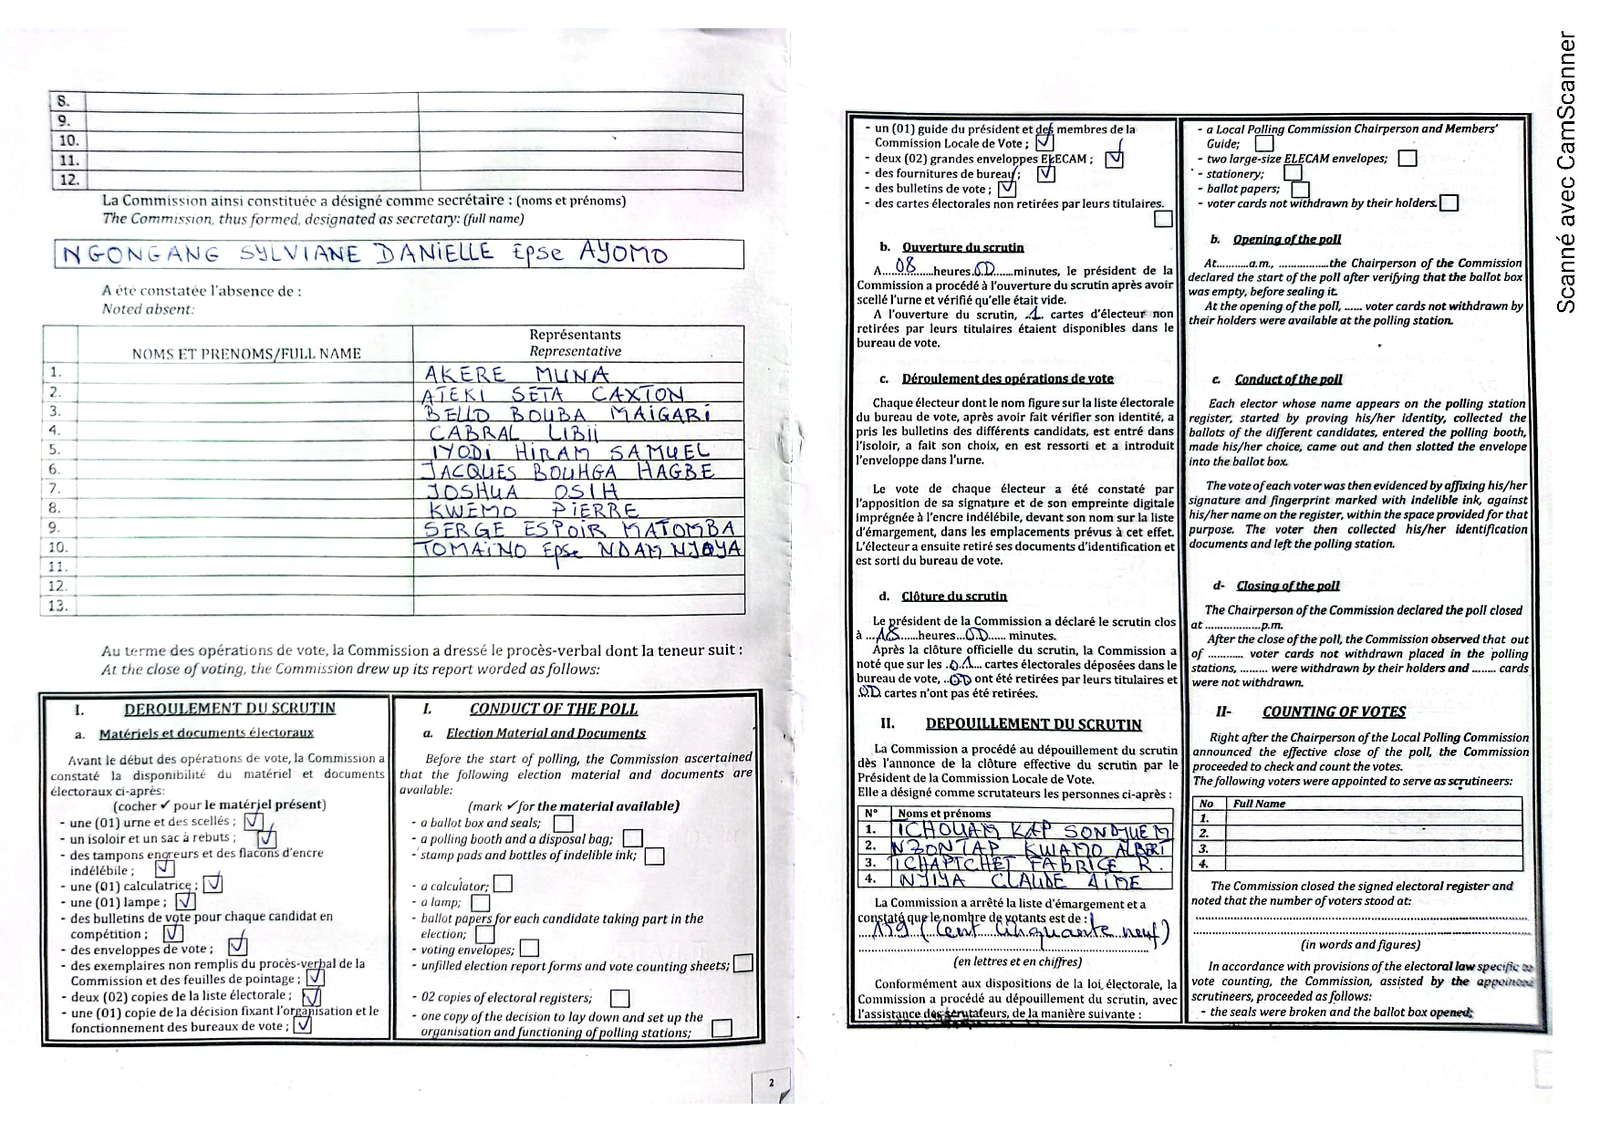 8.
9.
10.
11.
12.
La Commission ainsi constituée a désigné comme secrétaire : (noms et prénoms)
The Commission, thus formed, designated as secretary: (full name)
NGONGANG SYLVIANE DANIELLE Epse AYOMO
A été constatée l'absence de :
Noted absent:
NOMS ET PRENOMS/FULL NAME
Représentants
Representative
1. AKERE MUNA
2. ATEKI SETA CAXTON
3. BELLO BOUBA MAIGARI
4. CABRAL LIBII
5. IYODI HIRAM SAMUEL
6. JACQUES BOUHGA HAGBE
7. JOSHUA OSIH
8. KWEMO PIERRE
9. SERGE ESPOIR MATOMBA
10. TOMAINO Epse NDAM NJOYA
11.
12.
13.
Au terme des opérations de vote, la Commission a dressé le procès-verbal dont la teneur suit :
At the close of voting, the Commission drew up its report worded as follows:
I. DEROULEMENT DU SCRUTIN
a. Matériels et documents électoraux
Avant le début des opérations de vote, la Commission a
constaté la disponibilité du matériel et documents
électoraux ci-après:
(cocher ✓ pour le matériel présent)
- une (01) urne et des scellés ; ✓
- un isoloir et un sac à rebuts ; ✓
- des tampons encreurs et des flacons d'encre
indélébile ; ✓
- une (01) calculatrice ; ✓
- une (01) lampe ; ✓
- des bulletins de vote pour chaque candidat en
compétition ; ✓
- des enveloppes de vote ; ✓
- des exemplaires non remplis du procès-verbal de la
Commission et des feuilles de pointage ; ✓
- deux (02) copies de la liste électorale ; ✓
- une (01) copie de la décision fixant l'organisation et le
fonctionnement des bureaux de vote ; ✓
I. CONDUCT OF THE POLL
a. Election Material and Documents
Before the start of polling, the Commission ascertained
that the following election material and documents are
available:
(mark ✓ for the material available)
- a ballot box and seals;
- a polling booth and a disposal bag;
- stamp pads and bottles of indelible ink;
- a calculator;
- a lamp;
- ballot papers for each candidate taking part in the
election;
- voting envelopes;
- unfilled election report forms and vote counting sheets;
- 02 copies of electoral registers;
- one copy of the decision to lay down and set up the
organisation and functioning of polling stations;
2
- un (01) guide du président et des membres de la
Commission Locale de Vote ; ✓
- deux (02) grandes enveloppes ELECAM ; ✓
- des fournitures de bureau ; ✓
- des bulletins de vote ; ✓
- des cartes électorales non retirées par leurs titulaires.
b. Ouverture du scrutin
A 08 heures 00 minutes, le président de la
Commission a procédé à l'ouverture du scrutin après avoir
scellé l'urne et vérifié qu'elle était vide.
A l'ouverture du scrutin, 1 cartes d'électeur non
retirées par leurs titulaires étaient disponibles dans le
bureau de vote.
c. Déroulement des opérations de vote
Chaque électeur dont le nom figure sur la liste électorale
du bureau de vote, après avoir fait vérifier son identité, a
pris les bulletins des différents candidats, est entré dans
l'isoloir, a fait son choix, en est ressorti et a introduit
l'enveloppe dans l'urne.
Le vote de chaque électeur a été constaté par
l'apposition de sa signature et de son empreinte digitale
imprégnée à l'encre indélébile, devant son nom sur la liste
d'émargement, dans les emplacements prévus à cet effet.
L'électeur a ensuite retiré ses documents d'identification et
est sorti du bureau de vote.
d. Clôture du scrutin
Le président de la Commission a déclaré le scrutin clos
à 18 heures 00 minutes.
Après la clôture officielle du scrutin, la Commission a
noté que sur les 01 cartes électorales déposées dans le
bureau de vote, 00 ont été retirées par leurs titulaires et
00 cartes n'ont pas été retirées.
II. DEPOUILLEMENT DU SCRUTIN
La Commission a procédé au dépouillement du scrutin
dès l'annonce de la clôture effective du scrutin par le
Président de la Commission Locale de Vote.
Elle a désigné comme scrutateurs les personnes ci-après :
N° Noms et prénoms
1. TCHOUAM KAP SONDJUEM
2. NZONTAP KWAMO ALBERT
3. TCHAPTCHET FABRICE R.
4. NJIYA CLAUDE AIME
La Commission a arrêté la liste d'émargement et a
constaté que le nombre de votants est de :
159 (cent cinquante neuf)
(en lettres et en chiffres)
Conformément aux dispositions de la loi électorale, la
Commission a procédé au dépouillement du scrutin, avec
l'assistance des scrutateurs, de la manière suivante :
- a Local Polling Commission Chairperson and Members'
Guide;
- two large-size ELECAM envelopes;
- stationery;
- ballot papers;
- voter cards not withdrawn by their holders.
b. Opening of the poll
At..........a.m., ................the Chairperson of the Commission
declared the start of the poll after verifying that the ballot box
was empty, before sealing it.
At the opening of the poll, ...... voter cards not withdrawn by
their holders were available at the polling station.
c. Conduct of the poll
Each elector whose name appears on the polling station
register, started by proving his/her identity, collected the
ballots of the different candidates, entered the polling booth,
made his/her choice, came out and then slotted the envelope
into the ballot box.
The vote of each voter was then evidenced by affixing his/her
signature and fingerprint marked with indelible ink, against
his/her name on the register, within the space provided for that
purpose. The voter then collected his/her identification
documents and left the polling station.
d- Closing of the poll
The Chairperson of the Commission declared the poll closed
at ..................p.m.
After the close of the poll, the Commission observed that out
of ............ voter cards not withdrawn placed in the polling
stations, ......... were withdrawn by their holders and ........ cards
were not withdrawn.
II- COUNTING OF VOTES
Right after the Chairperson of the Local Polling Commission
announced the effective close of the poll, the Commission
proceeded to check and count the votes.
The following voters were appointed to serve as scrutineers:
No Full Name
1.
2.
3.
4.
The Commission closed the signed electoral register and
noted that the number of voters stood at:
(in words and figures)
In accordance with provisions of the electoral law specific to
vote counting, the Commission, assisted by the appointed
scrutineers, proceeded as follows:
- the seals were broken and the ballot box opened;
Scanné avec CamScanner